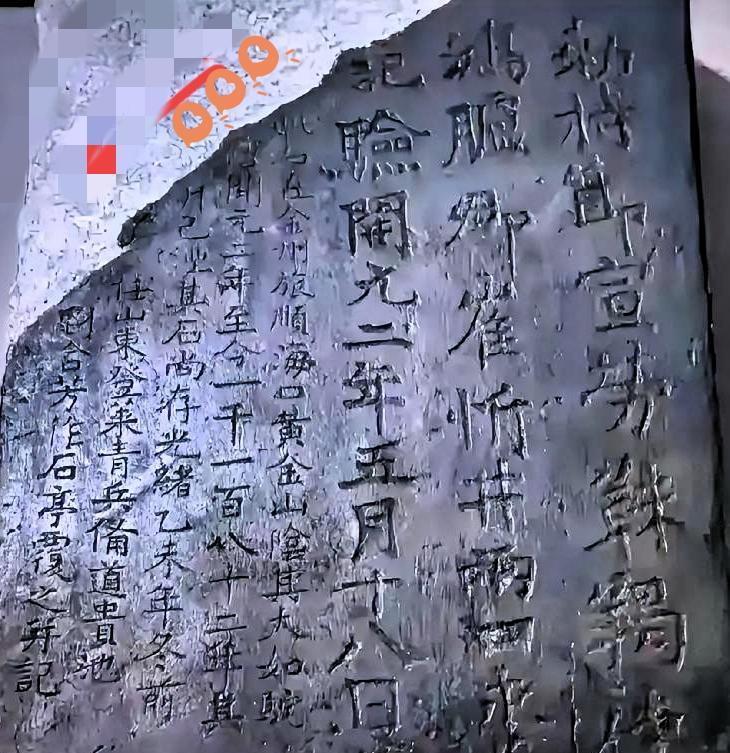 勅持節宣勞靺羯使
鴻臚卿崔忻井兩口永
記驗開元二年五月十八日
此石在金州旅順海口黃金山陰其大如駝
開元二年至今一千一百八十二年其
井已其石尚存光緒乙未年冬前
任山東登萊青兵備道貴池
劉含芳作石亭覆之并記